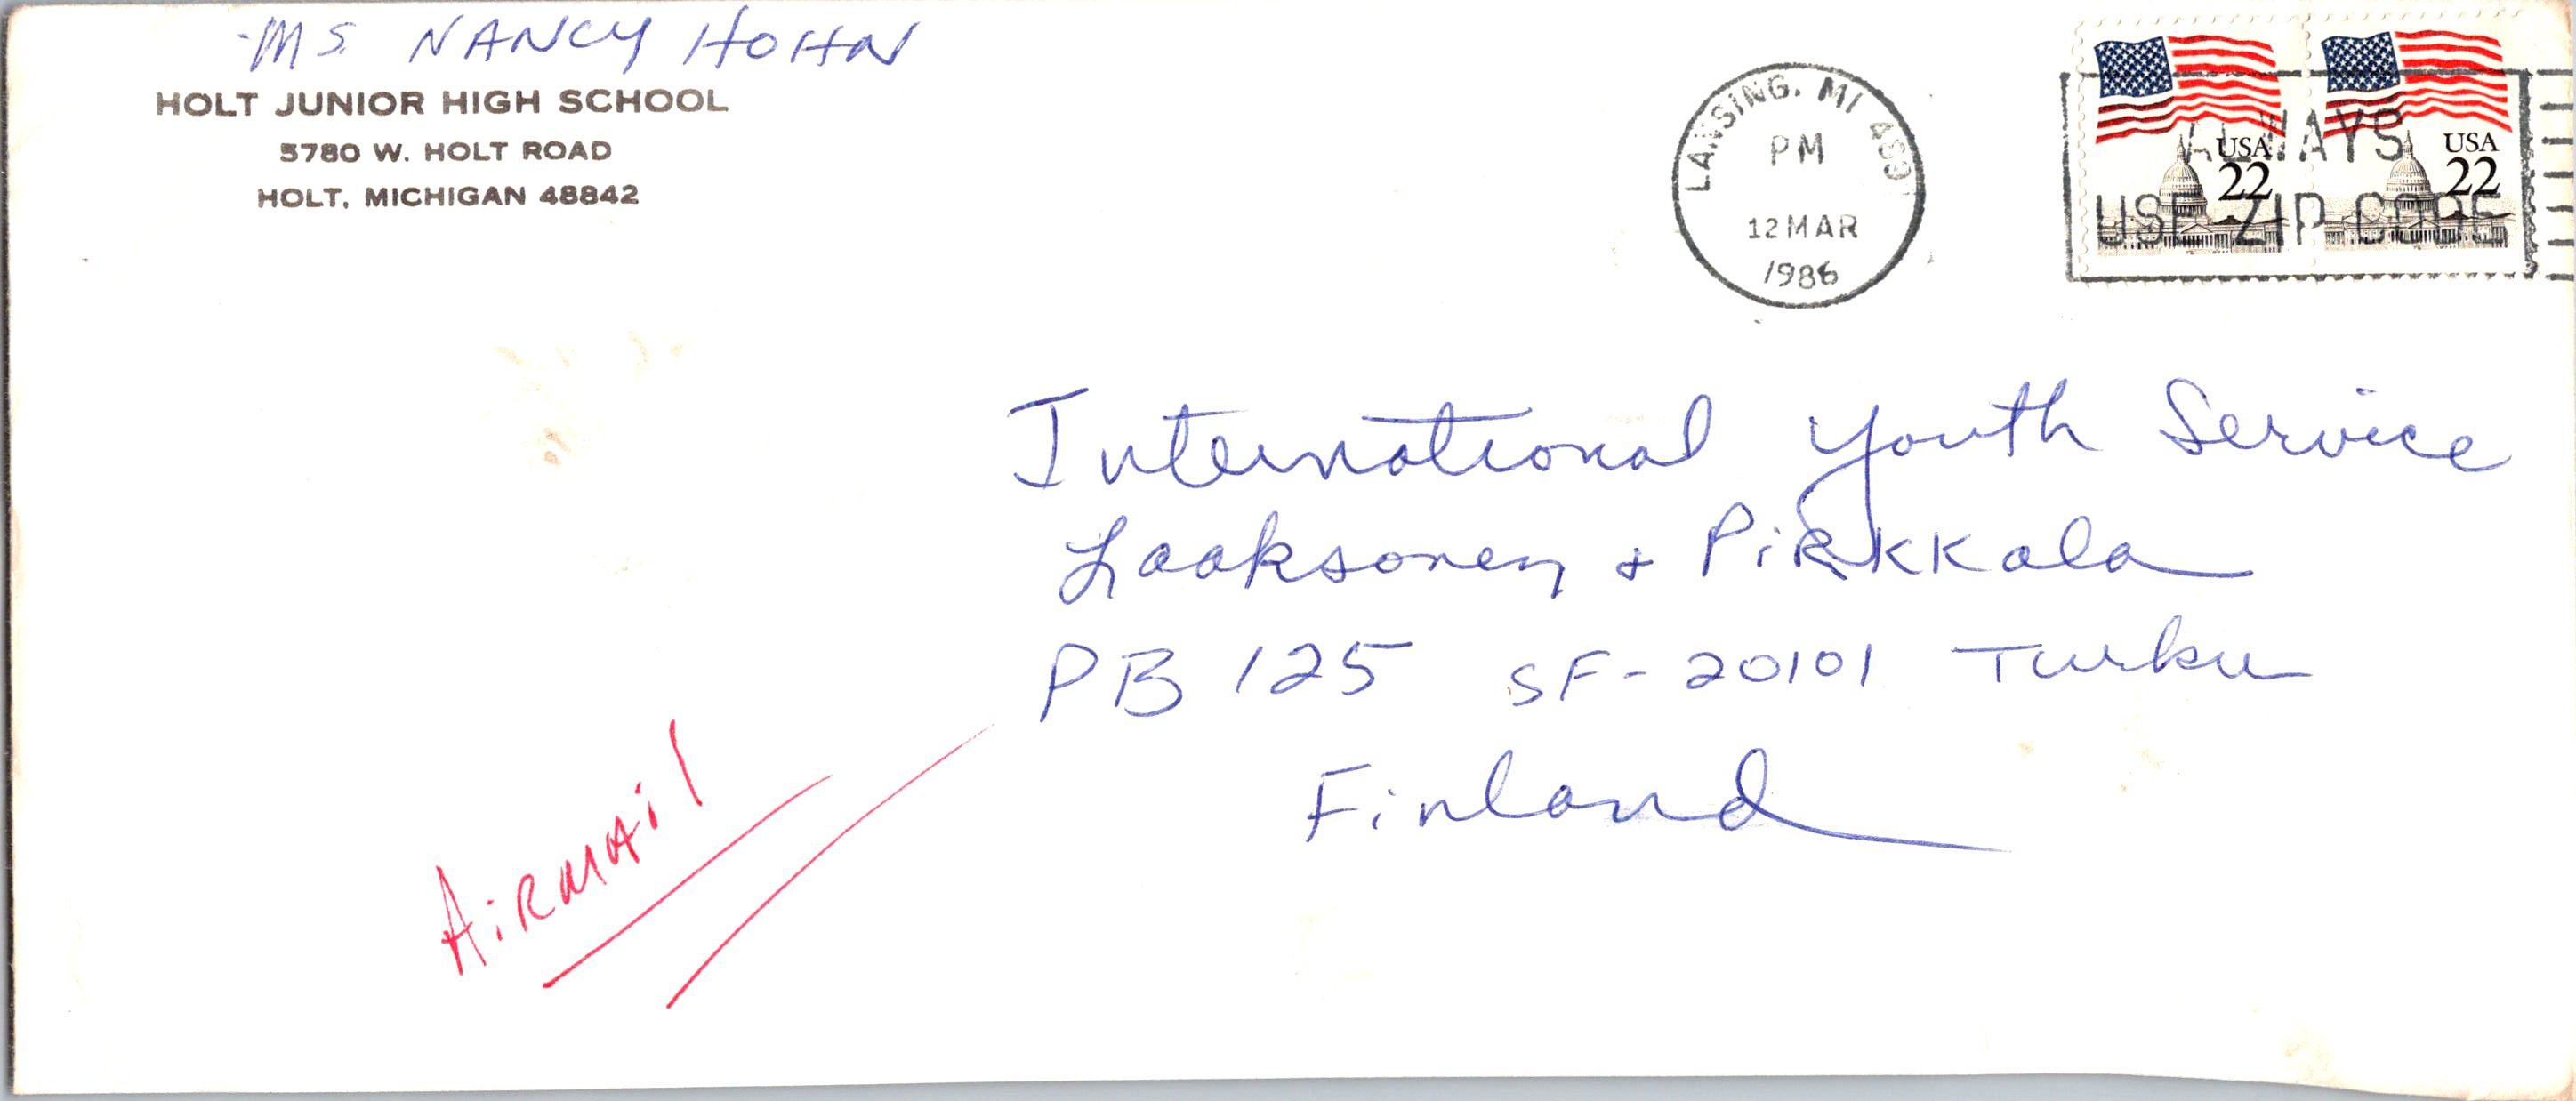 MS. NANCY HOHN
HOLT JUNIOR HIGH SCHOOL
5780 W. HOLT ROAD
HOLT, MICHIGAN 48842
LANSING, MI
PM
12 MAR
1986
USA
22
USA
22
ALWAYS
USE ZIP CODE
International Youth Service
Laaksonen + PiRkkKala
PB 125 SF-20101 Turku
Finland
AiRmAil